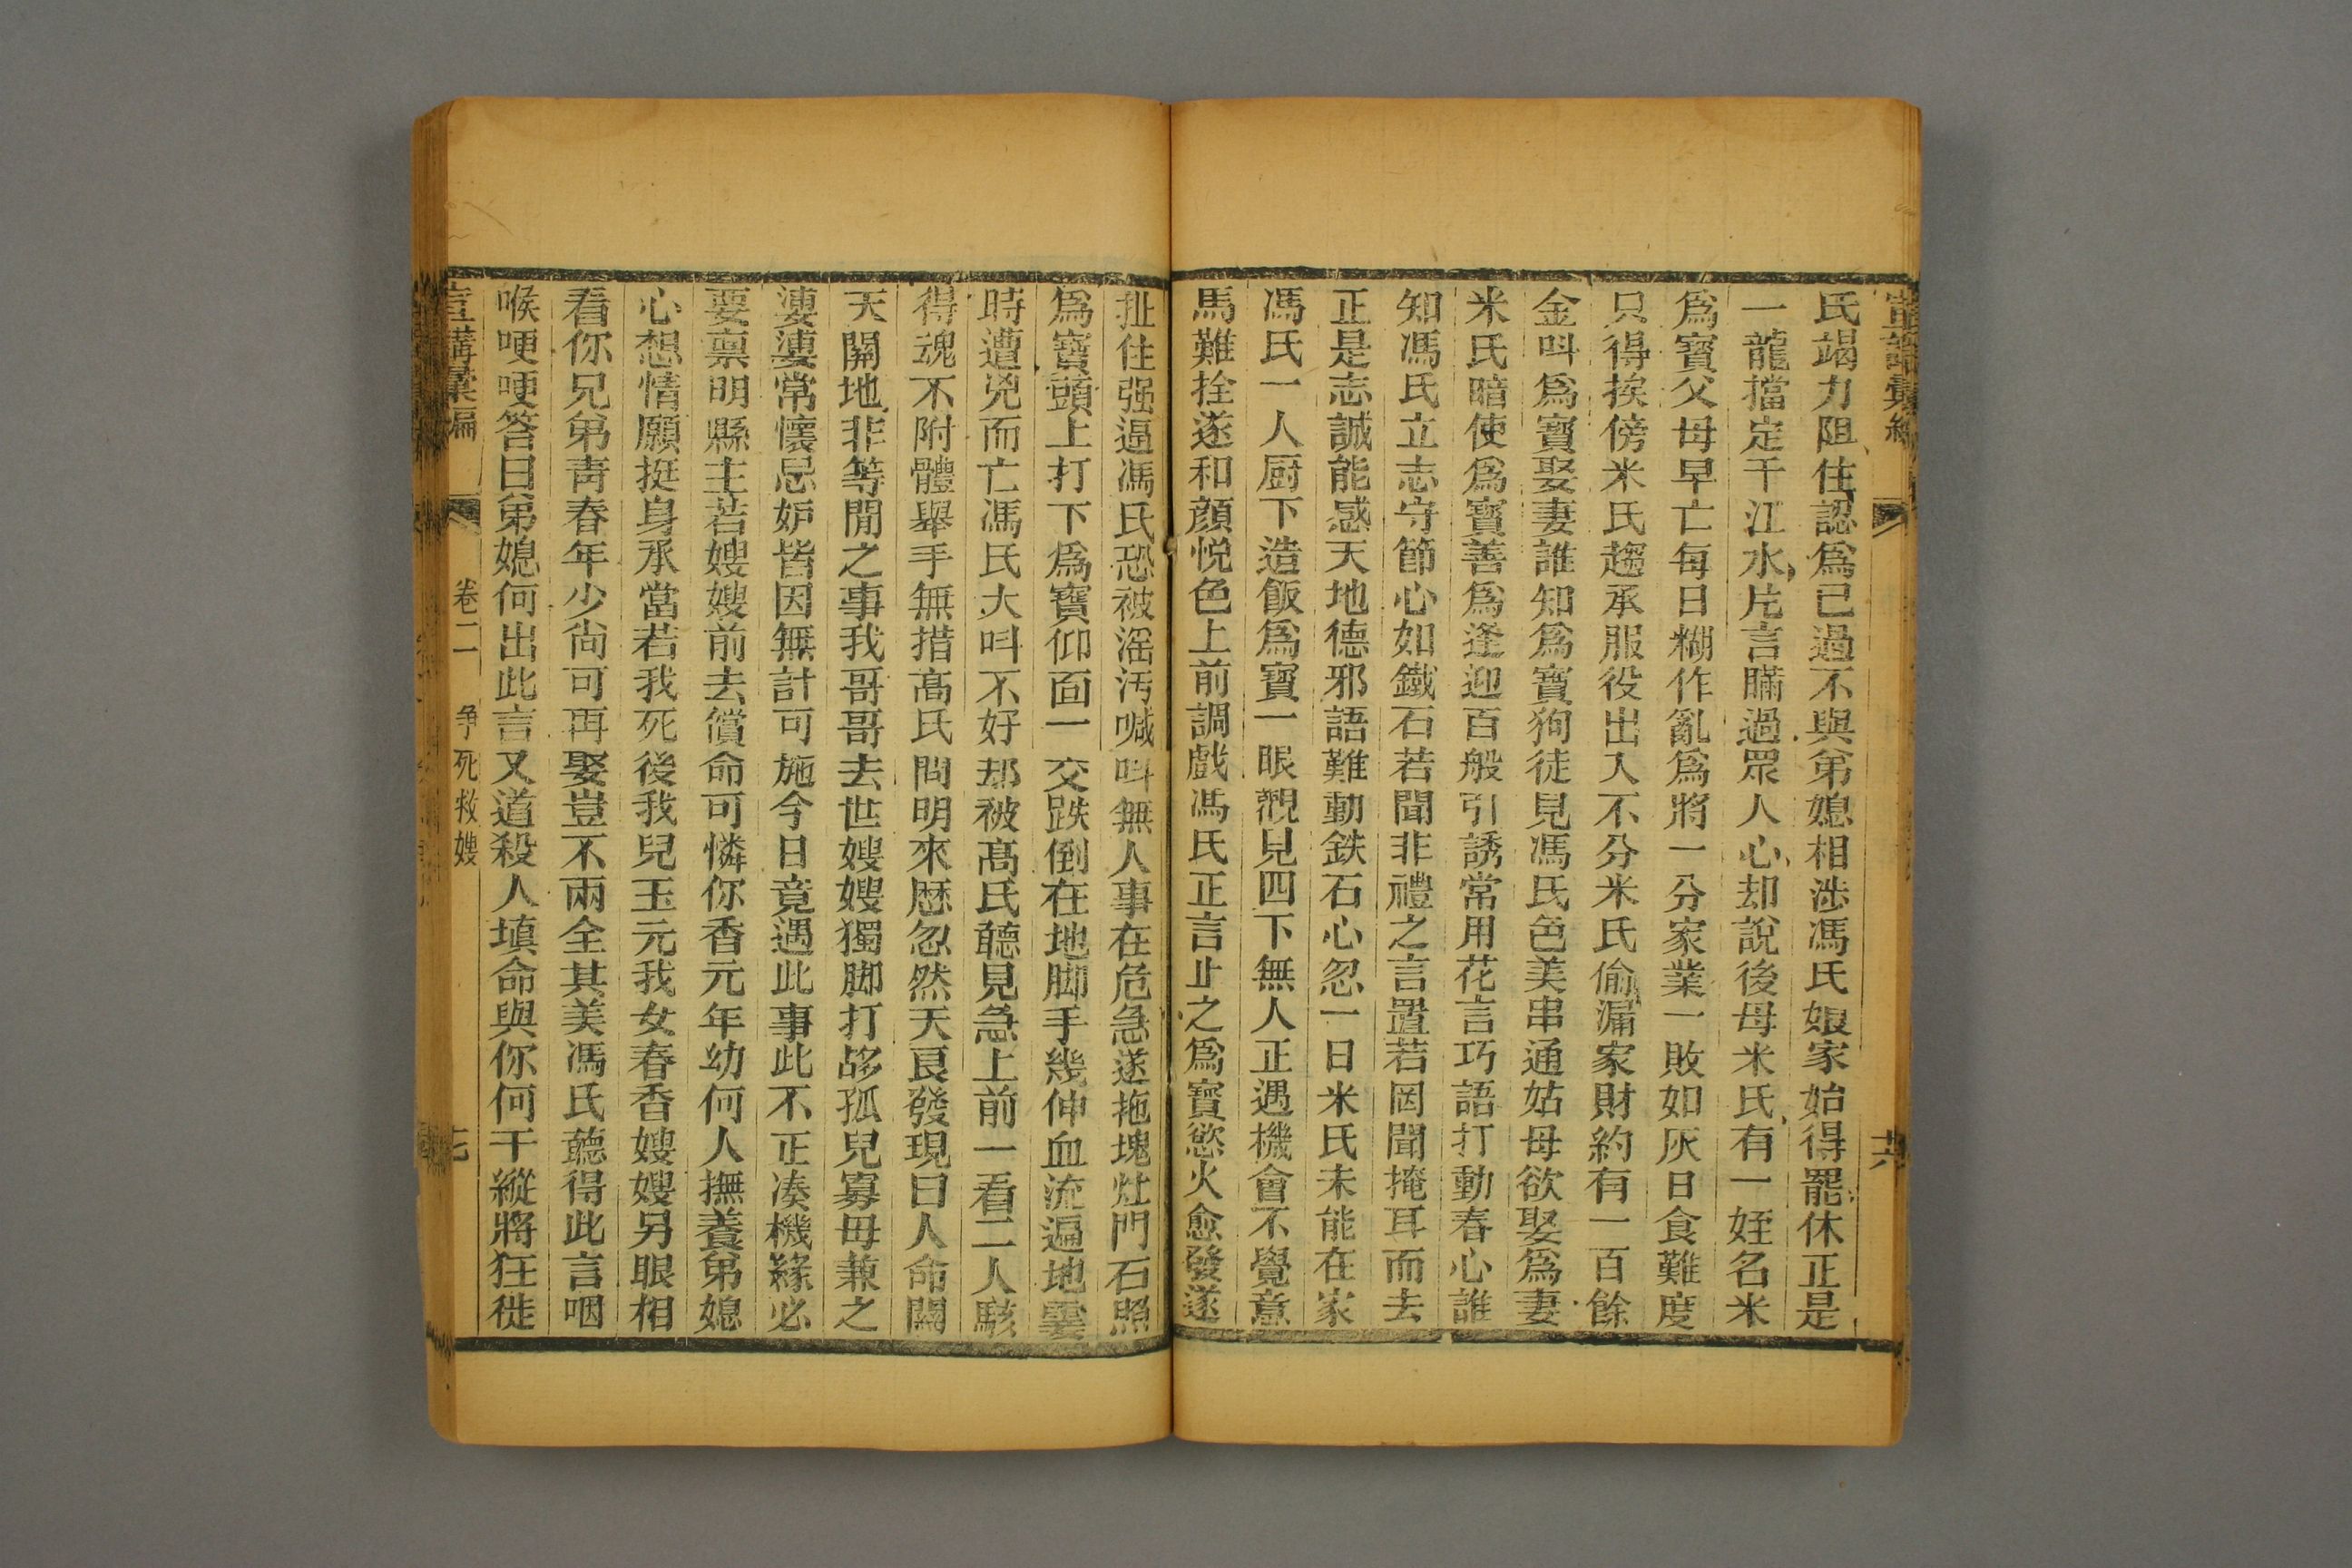 宣講彙編
十六
氏竭力阻住認爲已過不與弟媳相涉馮氏娘家始得罷休正是
一龍擋定千江水片言瞞過眾人心却說後母米氏有一姪名米
爲寶父母早亡每日糊作亂爲將一分家業一敗如灰日食難度
只得挨傍米氏趨承服役出入不分米氏偷漏家財約有一百餘
金呌爲寶娶妻誰知爲寶狗徒見馮氏色美串通姑母欲娶爲妻
米氏暗使爲寶善爲逢迎百般引誘常用花言巧語打動春心誰
知馮氏立志守節心如鐵石若聞非禮之言置若罔聞掩耳而去
正是志誠能感天地德邪語難動鉄石心忽一日米氏未能在家
馮氏一人厨下造飯爲寶一眼覩見四下無人正遇機會不覺意
馬難拴遂和顏悅色上前調戲馮氏正言止之爲寶慾火愈發遂
扯住强逼馮氏恐被滛汚喊呌無人事在危急遂拖塊灶門石照
爲寶頭上打下爲寶仰面一交跌倒在地脚手幾伸血流遍地霎
時遭兇而亡馮氏大呌不好却被髙氏聽見急上前一看二人駭
得魂不附體舉手無措髙氏問明來歴忽然天良發現曰人命關
天關地非等閒之事我哥哥去世嫂嫂獨脚打㪇孤兒寡母兼之
婆婆常懷忌妒皆因無計可施今日竟遇此事此不正凑機緣必
要禀明縣主若嫂嫂前去償命可憐你香元年幼何人撫養弟媳
心想情願挺身承當若我死後我兒玉元我女春香嫂嫂另眼相
看你兄弟靑春年少尚可再娶豈不兩全其美馮氏聽得此言咽
喉哽哽答曰弟媳何出此言又道殺人塡命與你何干縱將狂徒
宣講彙編
卷二
争死救嫂
七